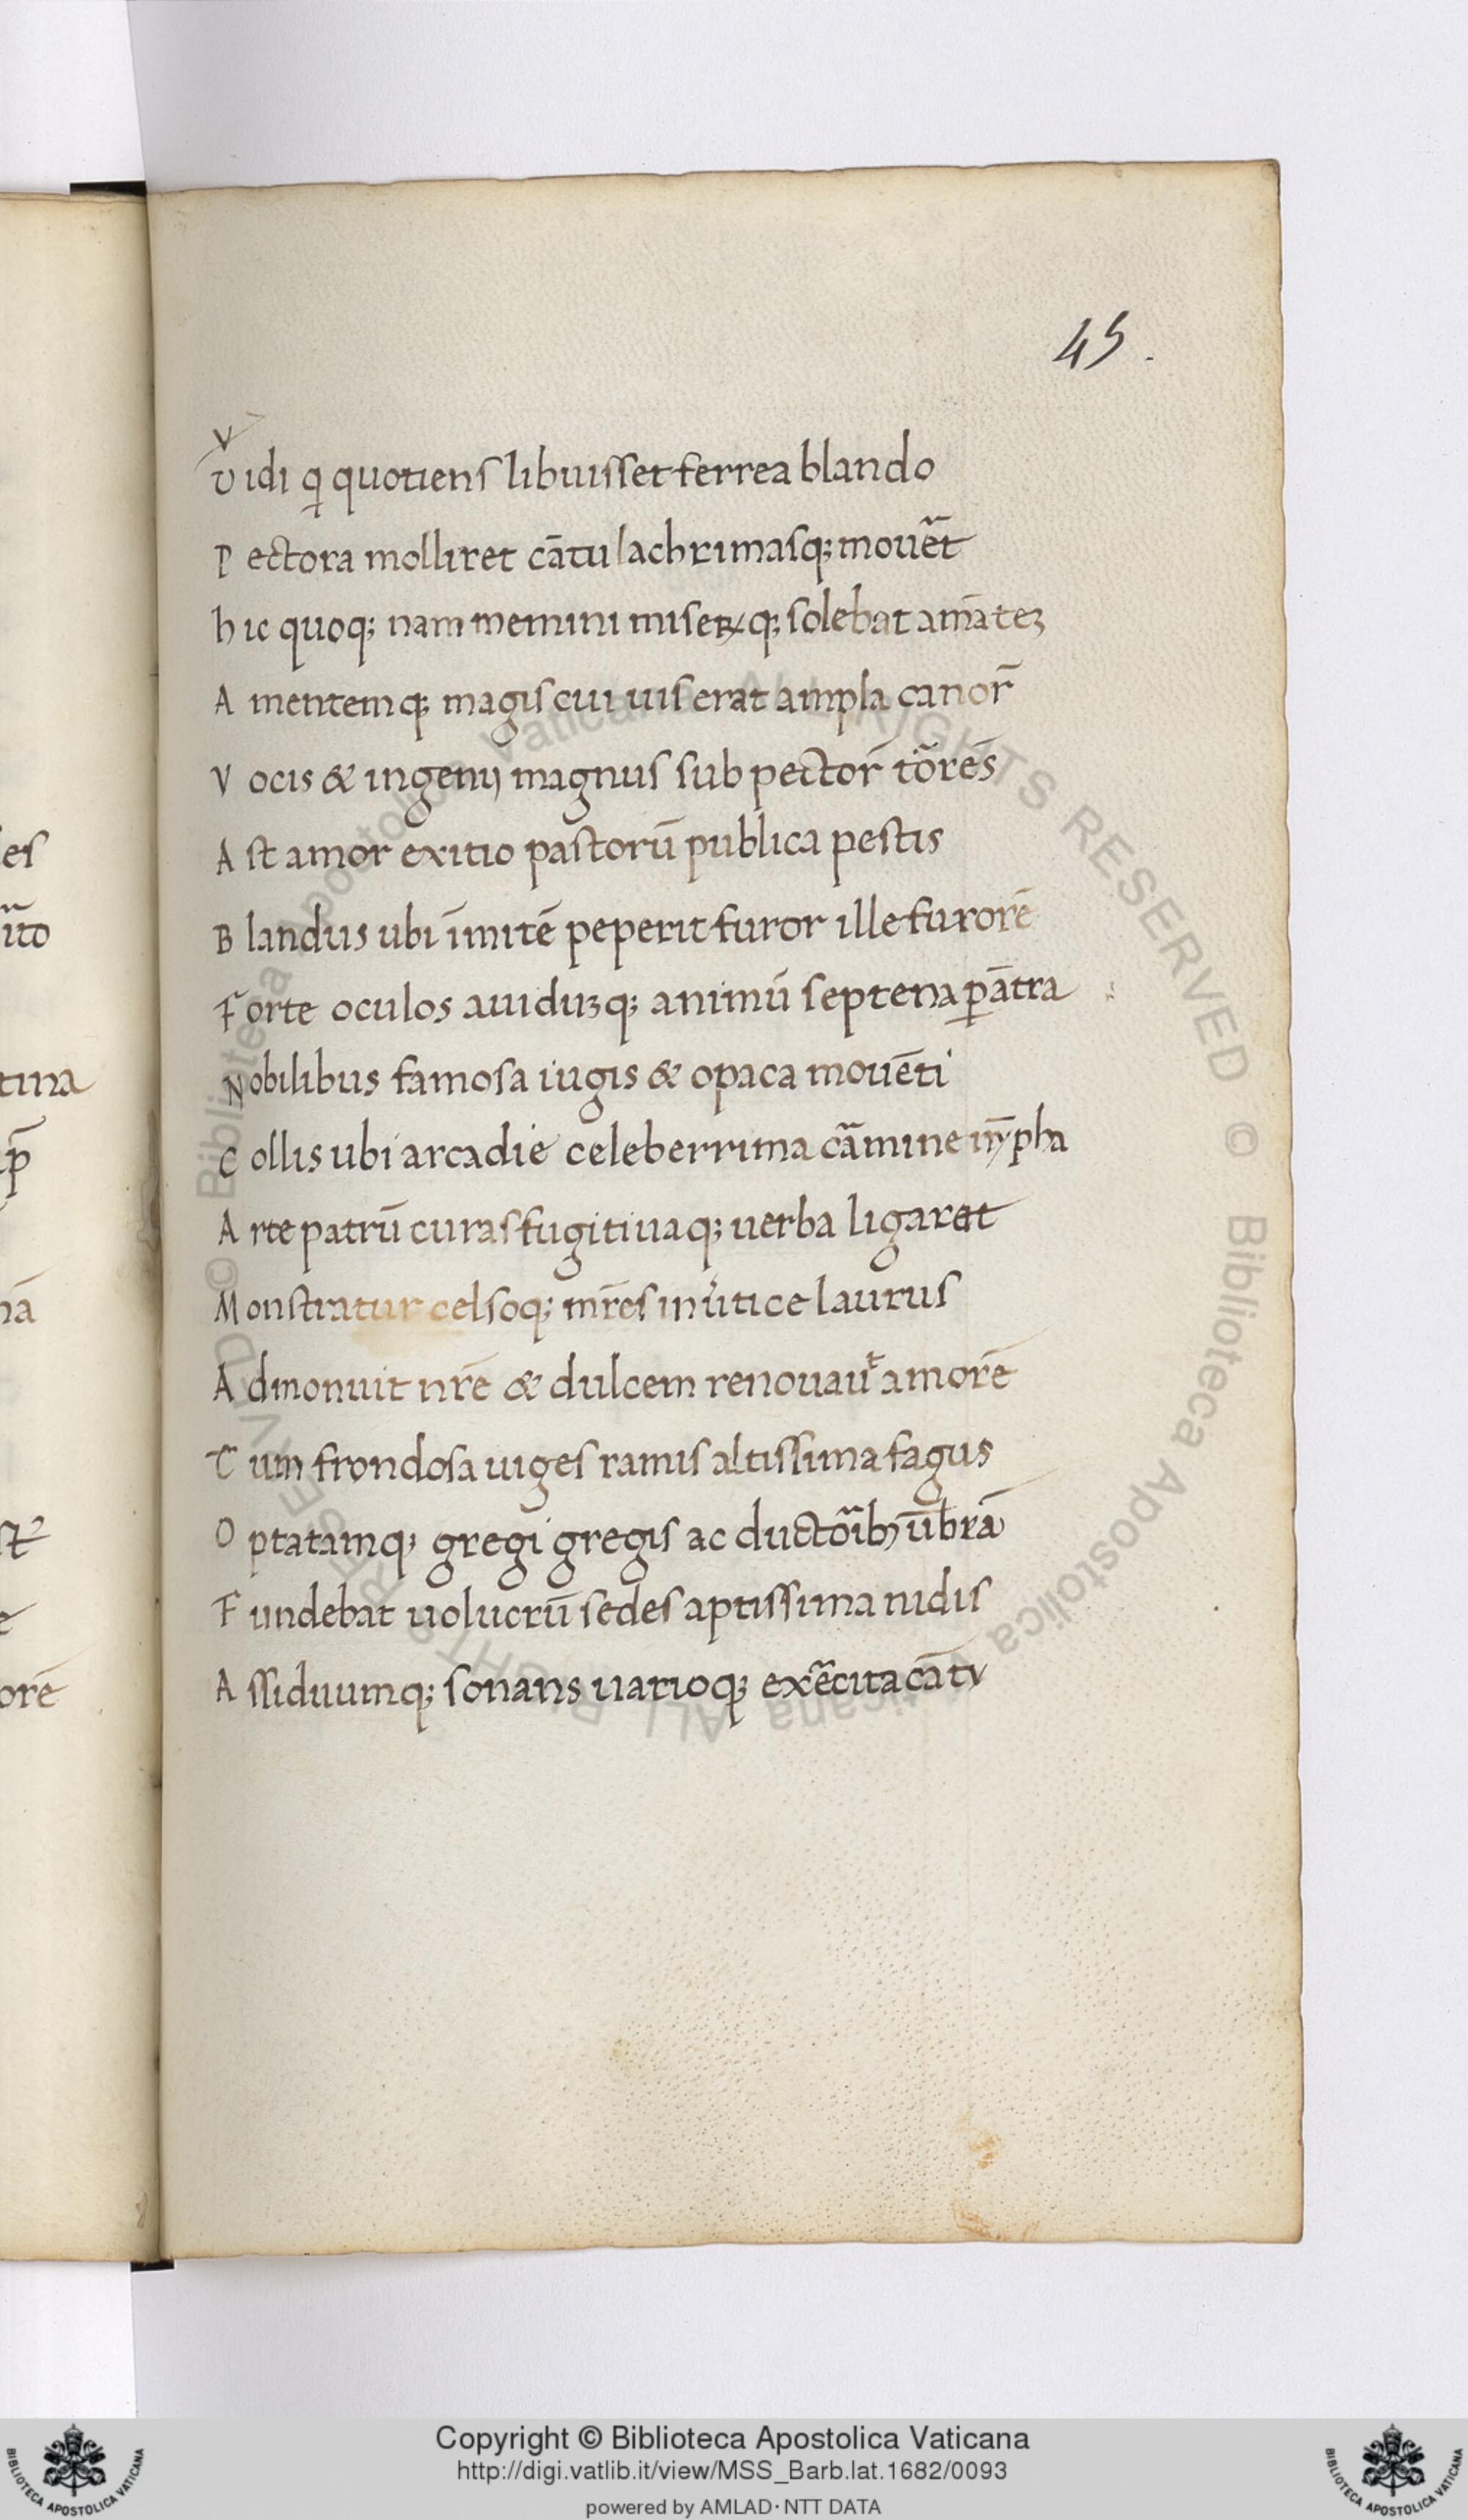 45.
v
Vidi qi quotiens libuisset ferrea blando
Pectora molliret cātu lachrimasq; mouēt
hic quoq; nam memini miseꝝq; solebat amāteʒ
Amentemq; magis cui uis erat ampla canor̄
Vocis & ingenij magnus sub pector̄ tōrēs
Ast amor exitio pastorū publica pestis
Blandus ubi īmitē peperit furor ille furorē
Forte oculos auiduʒq; animū septena ꝑ ātra
Nobilibus famosa iugis & opaca mouēti
Collis ubi arcadie celeberrima cāmine nȳpha
Arte patrū curas fugitiuaq; uerba ligaret
Monstratur celsoq; mr̄es in ūtice laurus
Admonuit nr̄e & dulcem renouauͭ amorē
Tum frondosa uiges ramis altissima fagus
Optatamq; gregi gregis ac ductōib; ūbrā
Fundebat uolucrū sedes aptissima nidis
Assiduumq; sonans uarioq; exēcita cātv
es
tina
orē
Copyright © Biblioteca Apostolica Vaticana
http://digi.vatlib.it/view/MSS_Barb.lat.1682/0093
powered by AMLAD·NTT DATA
BIBLIOTECA APOSTOLICA VATICANA
BIBLIOTECA APOSTOLICA VATICANA
© Biblioteca Apostolica Vaticana ALL RIGHTS RESERVED
© Biblioteca Apostolica Vaticana ALL RIGHTS RESERVED